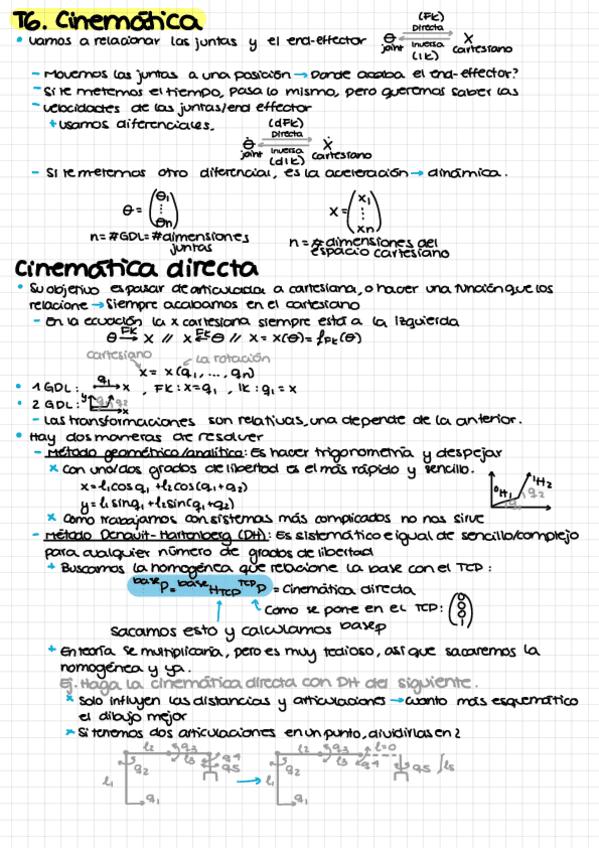 T6. Cinemática
• Vamos a relacionar las juntas y el end-effector θ (FK) Directa Inversa (IK) X
joint cartesiano
- Movemos las juntas a una posición → Donde acaba el end-effector?
- Si le metemos el tiempo, pasa lo mismo, pero queremos saber las
- velocidades de las juntas/end effector
+ usamos diferenciales.
(dFK)
Directa
θ̇ Inversa Ẋ
joint (dIK) cartesiano
- Si le metemos otro diferencial, es la aceleración → dinámica.
θ = (θ1 ⋮ θn) X = (x1 ⋮ xn)
n = #GDL = #dimensiones juntas
n = # dimensiones del espacio cartesiano
Cinemática directa
• Su objetivo es pasar de articulada a cartesiana, o hacer una función que los
relacione → Siempre acabamos en el cartesiano
- En la ecuación la x cartesiana siempre está a la izquierda
θ FK→ X // X FK← θ // X = X(θ) = fFK(θ)
cartesiano la rotación
X = X(q1, ..., qn)
• 1 GDL: q1 → x , FK: x=q1 , IK: q1=x
• 2 GDL: y q1 q2 x
- Las transformaciones son relativas, una depende de la anterior.
• Hay dos maneras de resolver
- Método geométrico/analítico: Es hacer trigonometría y despejar
× Con uno/dos grados de libertad es el más rápido y sencillo.
x = l1 cos q1 + l2 cos(q1+q2)
y = l1 sin q1 + l2 sin(q1+q2)
0H1 1H2 q1 q2
× Como trabajamos con sistemas más complicados no nos sirve
- Método Denavit-Hartenberg (DH): Es sistemático e igual de sencillo/complejo
para cualquier número de grados de libertad
+ Buscamos la homogénea que relacione la base con el TCP:
base P = base H TCP TCP P = Cinemática directa
Como se pone en el TCP: (0 0 0 1)
Sacamos esto y calculamos base P
+ En teoría se multiplicaría, pero es muy tedioso, así que sacaremos la
homogénea y ya.
Ej. Haga la cinemática directa con DH del siguiente.
× Solo influyen las distancias y articulaciones → Cuanto más esquemático
el dibujo mejor
× Si tenemos dos articulaciones en un punto, dividirlas en 2
l2 q3 l3 q4 q5 l1 q2 q1
l2 q3 l=0 l3 q4 q5 l5 l1 q2 q1